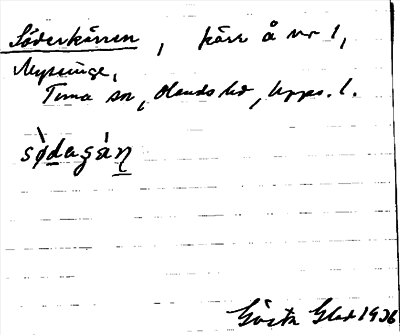 Söderkärren, kärr å nr 1,
Nysunge,
Tuna sn, Olands hd, Upps. l.
sø̀dagàn
Gösta Glad 1936